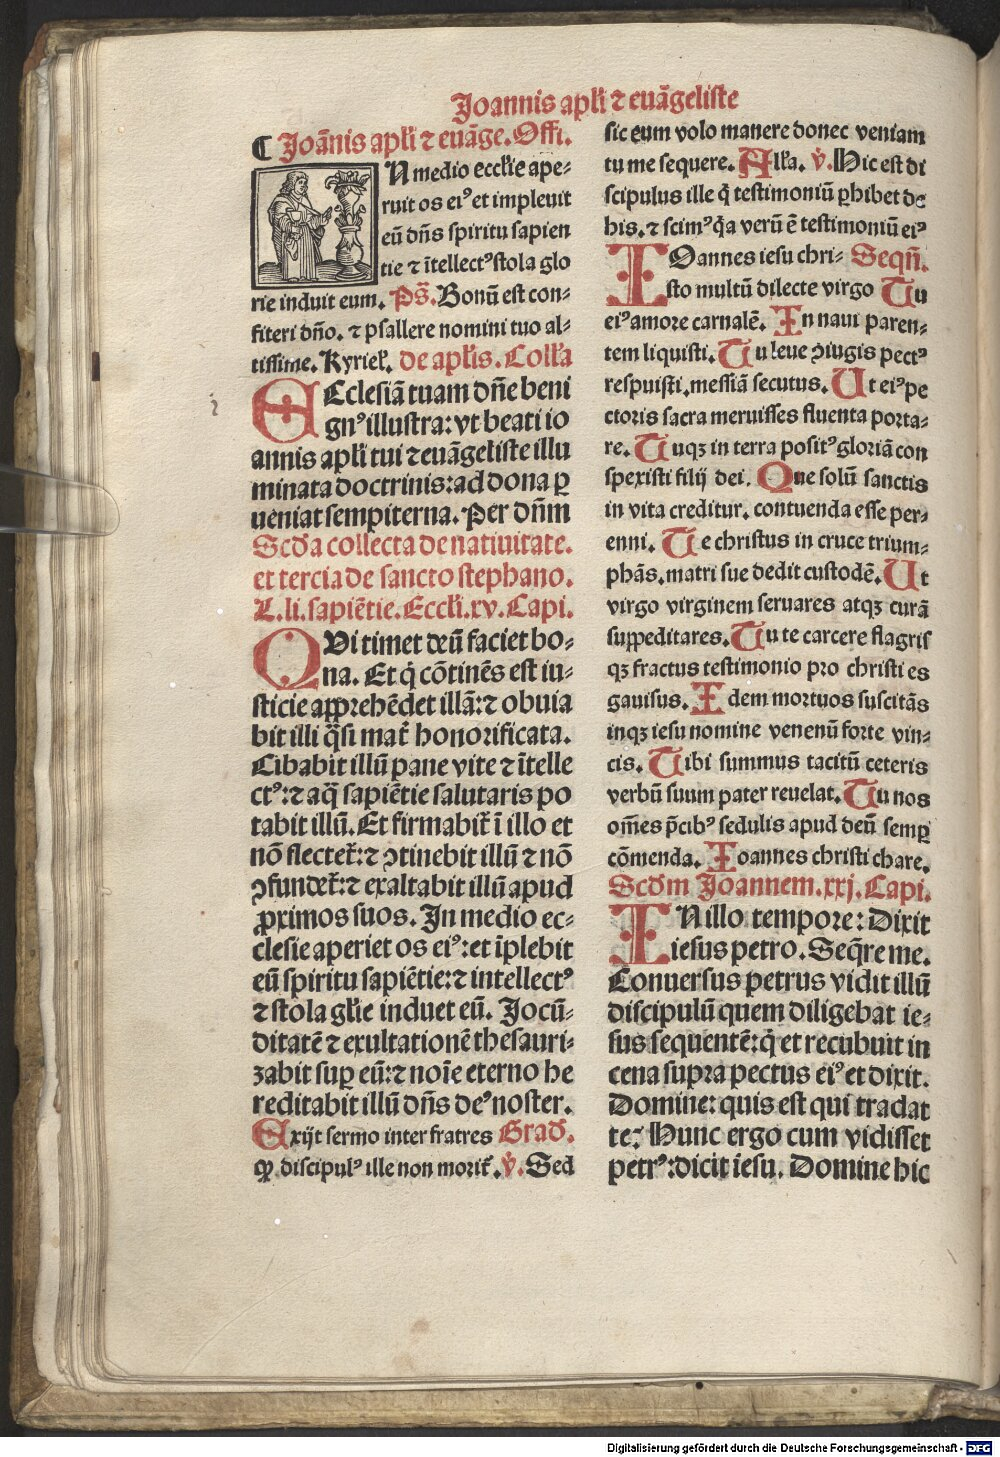 Joannis apl̓i ⁊ euãgeliste
¶ Joãnis apl̓i ⁊ euãge. Offi.
IN medio eccl̓ie ape-
ruit os eiꝰ et impleuit
eũ dñs spiritu sapien
tie ⁊ ĩtellectꝰ stola glo
rie induit eum. Ps̃. Bonũ est con-
fiteri dño. ⁊ psallere nomini tuo al-
tissime. Kyriel̓. de apl̓is. Coll̓a
ECclesiã tuam dñe beni
gnꝰ illustra: vt beati io
annis apl̓i tui ⁊ euãgeliste illu
minata doctrinis: ad dona ꝑ
ueniat sempiterna. Per dñm
Scd̓a collecta de natiuitate.
et tercia de sancto stephano.
L. li. sapiẽtie. Eccl̓i. xv. Capi.
QVi timet deũ faciet bo-
na. Et q̇ cõtinẽs est iu-
sticie apprehẽdet illã: ⁊ obuia
bit illi q̃si mat̓ honorificata.
Cibabit illũ pane vite ⁊ ĩtelle
ctꝰ: ⁊ aq̃ sapiẽtie salutaris po
tabit illũ. Et firmabit̓ ĩ illo et
nõ flectet̓: ⁊ ꝯtinebit illũ ⁊ nõ
ꝯfundet̓: ⁊ exaltabit illũ apud
ꝓximos suos. In medio ec-
clesie aperiet os eiꝰ: et ĩplebit
eũ spiritu sapiẽtie: ⁊ intellectꝰ
⁊ stola gl̓ie induet eũ. Jocũ-
ditatẽ ⁊ exultationẽ thesauri-
zabit suꝑ eũ: ⁊ noĩe eterno he
reditabit illũ dñs deꝰ noster.
Exijt sermo inter fratres Grad̓.
ꝙ discipulꝰ ille non morit̓. v̓. Sed
sic eum volo manere donec veniam
tu me sequere. All̓a. v̓. Hic est di
scipulus ille q̇ testimoniũ ꝑhibet de
his. ⁊ scimꝰ q̓a verũ ẽ testimoniũ eiꝰ
IOannes iesu chri- Seqñ.
sto multũ dilecte virgo Tu
eiꝰ amore carnalẽ. In naui paren-
tem liquisti. Tu leue ꝯiugis pectꝰ
respuisti. messiã secutus. Ut eiꝰ pe
ctoris sacra meruisses fluenta porta-
re. Tuqꝫ in terra positꝰ gloriã con
spexisti filij dei. Que solũ sanctis
in vita creditur. contuenda esse per-
enni. Te christus in cruce trium-
phãs. matri sue dedit custodẽ. Ut
virgo virginem seruares atqꝫ curã
suppeditares. Tu te carcere flagris
qꝫ fractus testimonio pro christi es
gauisus. Idem mortuos suscitãs
inqꝫ iesu nomine venenũ forte vin-
cis. Tibi summus tacitũ ceteris
verbũ suum pater reuelat. Tu nos
om̃es p̃cibꝰ sedulis apud deũ semꝑ
cõmenda. Ioannes christi chare.
Scd̓m Joannem. xxj. Capi.
IN illo tempore: Dixit
iesus petro. Seq̃re me.
Conuersus petrus vidit illũ
discipulũ quem diligebat ie-
sus sequentẽ: q̇ et recubuit in
cena supra pectus eiꝰ et dixit.
Domine: quis est qui tradat
te? Hunc ergo cum vidisset
petrꝰ: dicit iesu. Domine hic
Digitalisierung gefördert durch die Deutsche Forschungsgemeinschaft - DFG